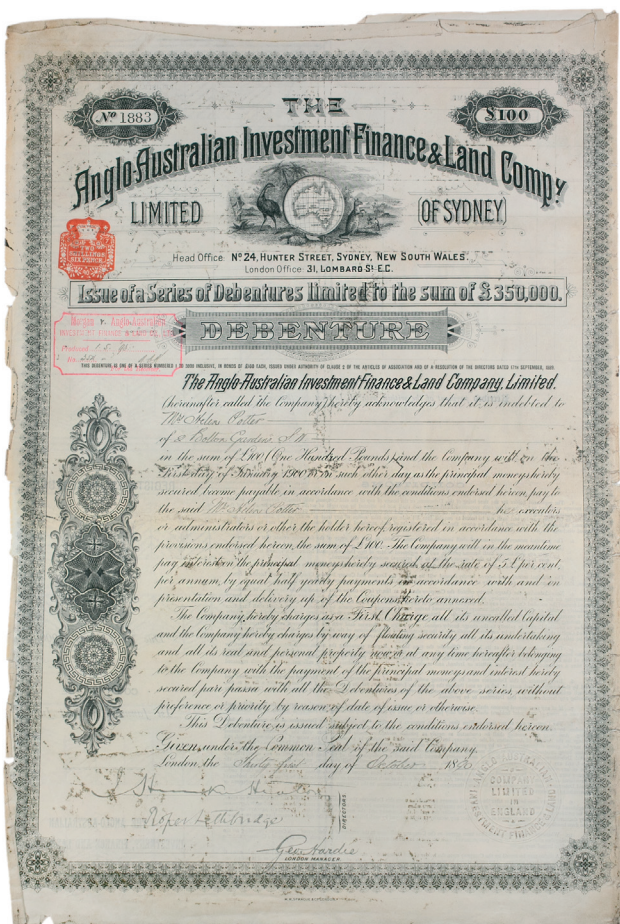 THE
Nº 1883
£100
Anglo-Australian Investment Finance & Land Compy.
LIMITED (OF SYDNEY)
TWO SHILLINGS SIX PENCE
Head Office Nº 24, HUNTER STREET, SYDNEY, NEW SOUTH WALES.
London Office: 31, LOMBARD St. E.C.
Issue of a Series of Debentures limited to the sum of £350,000.
DEBENTURE
THIS DEBENTURE IS ONE OF A SERIES NUMBERED 1 TO 3500 INCLUSIVE, IN BONDS OF £100 EACH, ISSUED UNDER AUTHORITY OF CLAUSE 2 OF THE ARTICLES OF ASSOCIATION AND OF A RESOLUTION OF THE DIRECTORS DATED 17TH SEPTEMBER,
The Anglo-Australian Investment Finance & Land Company, Limited.
(hereinafter called the Company) hereby acknowledges that it is indebted to
Helen Potter
of 2 Bolton Gardens S.W.
in the sum of £100 (One Hundred Pounds) and the Company will on the
First day of January 1900 or on such other day as the principal moneys hereby
secured become payable in accordance with the conditions endorsed hereon, pay to
the said Helen Potter her executors
or administrators or other the holder hereof registered in accordance with the
provisions endorsed hereon, the sum of £100. The Company will in the meantime
pay interest on the principal moneys hereby secured at the rate of per cent.
per annum, by equal half yearly payments in accordance with and on
presentation and delivery up of the Coupons hereto annexed.
The Company hereby charges as a First Charge all its uncalled Capital
and the Company hereby charges by way of floating security all its undertaking
and all its real and personal property now or at any time hereafter belonging
to the Company with the payment of the principal moneys and interest hereby
secured pari passu with all the Debentures of the above series, without
preference or priority by reason of date of issue or otherwise.
This Debenture is issued subject to the conditions endorsed hereon.
Given under the Common Seal of the said Company.
London, the day of October
Roper Lethbridge
DIRECTORS
Geo. Hardie
LONDON MANAGER
COMPANY LIMITED IN ENGLAND